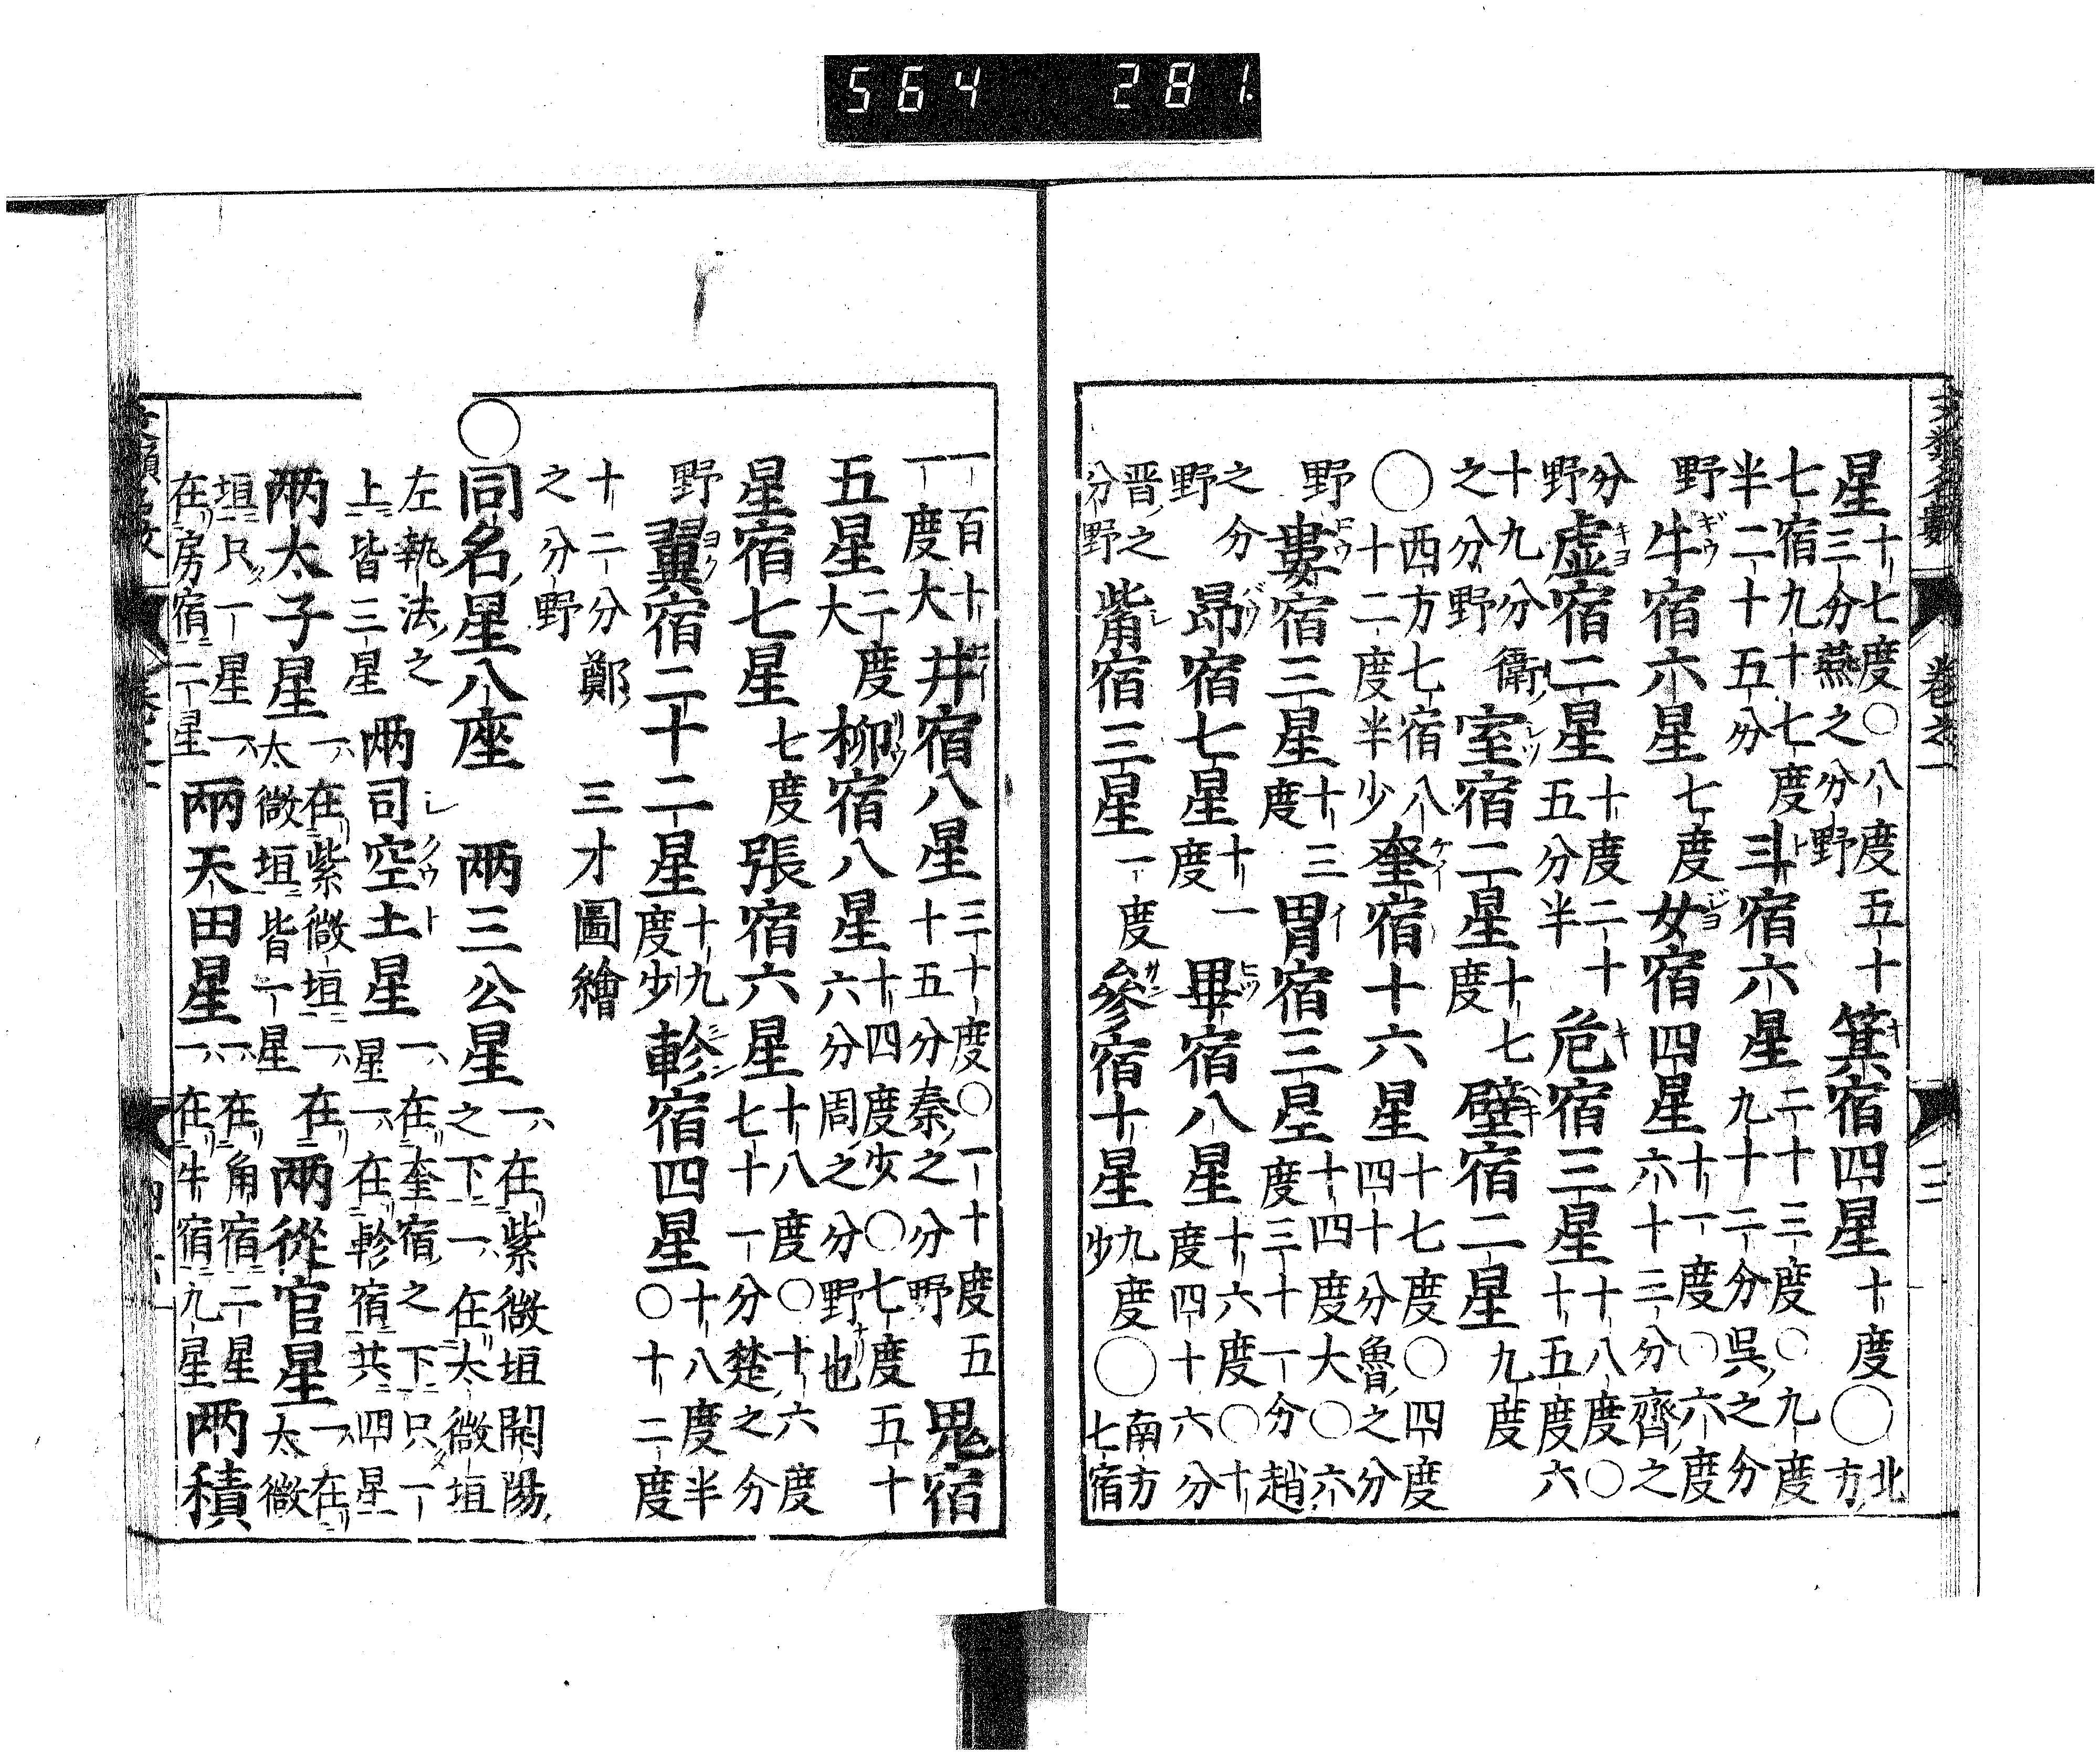 564 281.
卷之一
星 十七度○八度五十 箕宿四星 十度 ○ 北
三分燕之分野 方
七宿九十七度 斗宿六星 二十三度○九度
半二十五分 九十二分吳之分
野 牛宿六星 七度 女宿四星 十一度○六度
六十三分齊之
分 虛宿二星 十度二十 危宿三星 十八度○
野 五分半 十五度六
十九分衛 室宿二星 十七 壁宿二星 九度
之分野 度
○ 西方七宿八 奎宿十六星 十七度○四度
十二度半少 四十分魯之分
野 婁宿三星 十三 胃宿三星 十四度大○六
度 度三十一分趙
之分 昴宿七星 十一 畢宿八星 十六度○十
野 度 度四十六分
晋之 觜宿三星 一度 參宿十星 九度 ○ 南方
分野 少 七宿
一百十 井宿八星 三十度○一十度五 鬼宿
一度大 十五分秦之分野
五星 二度 柳宿八星 十四度少○七度五十
大 六分周之分野也
星宿七星 七度 張宿六星 十八度○十六度
七十一分楚之分
野 翼宿二十二星 十九 軫宿四星 十八度半
度少 ○十二度
十二分鄭 三才圖繪
之分野
○同名星八座 兩三公星 一在紫微垣開陽
之下一在太微垣
左執法之 兩司空土星 一在奎宿之下只一
上皆三星 星一在軫宿共四星
兩太子星 一在紫微垣一在 兩從官星 一在
太微垣皆一星 太微
垣只一星一 兩天田星 一在角宿二星 兩積
在房宿二星 一在牛宿九星